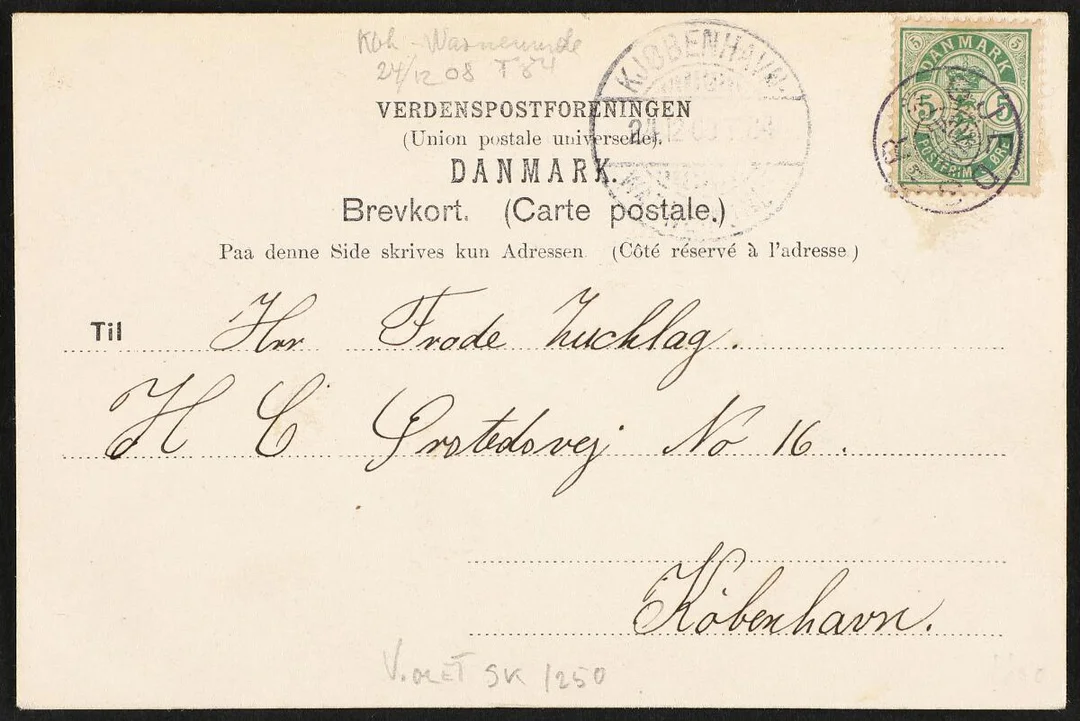 Kbh - Warnemünde
24/12 08 T 84
KJØBENHAVN.
DANMARK
5 5
POSTFRIM ØRE
GJEDSER
VERDENSPOSTFORENINGEN
(Union postale universelle).
DANMARK.
Brevkort. (Carte postale.)
Paa denne Side skrives kun Adressen. (Côté réservé à l'adresse.)
Til Hrr Frode Zuchlag.
H C Ørstedsvej No 16.
København.
VIOLET SK 1250